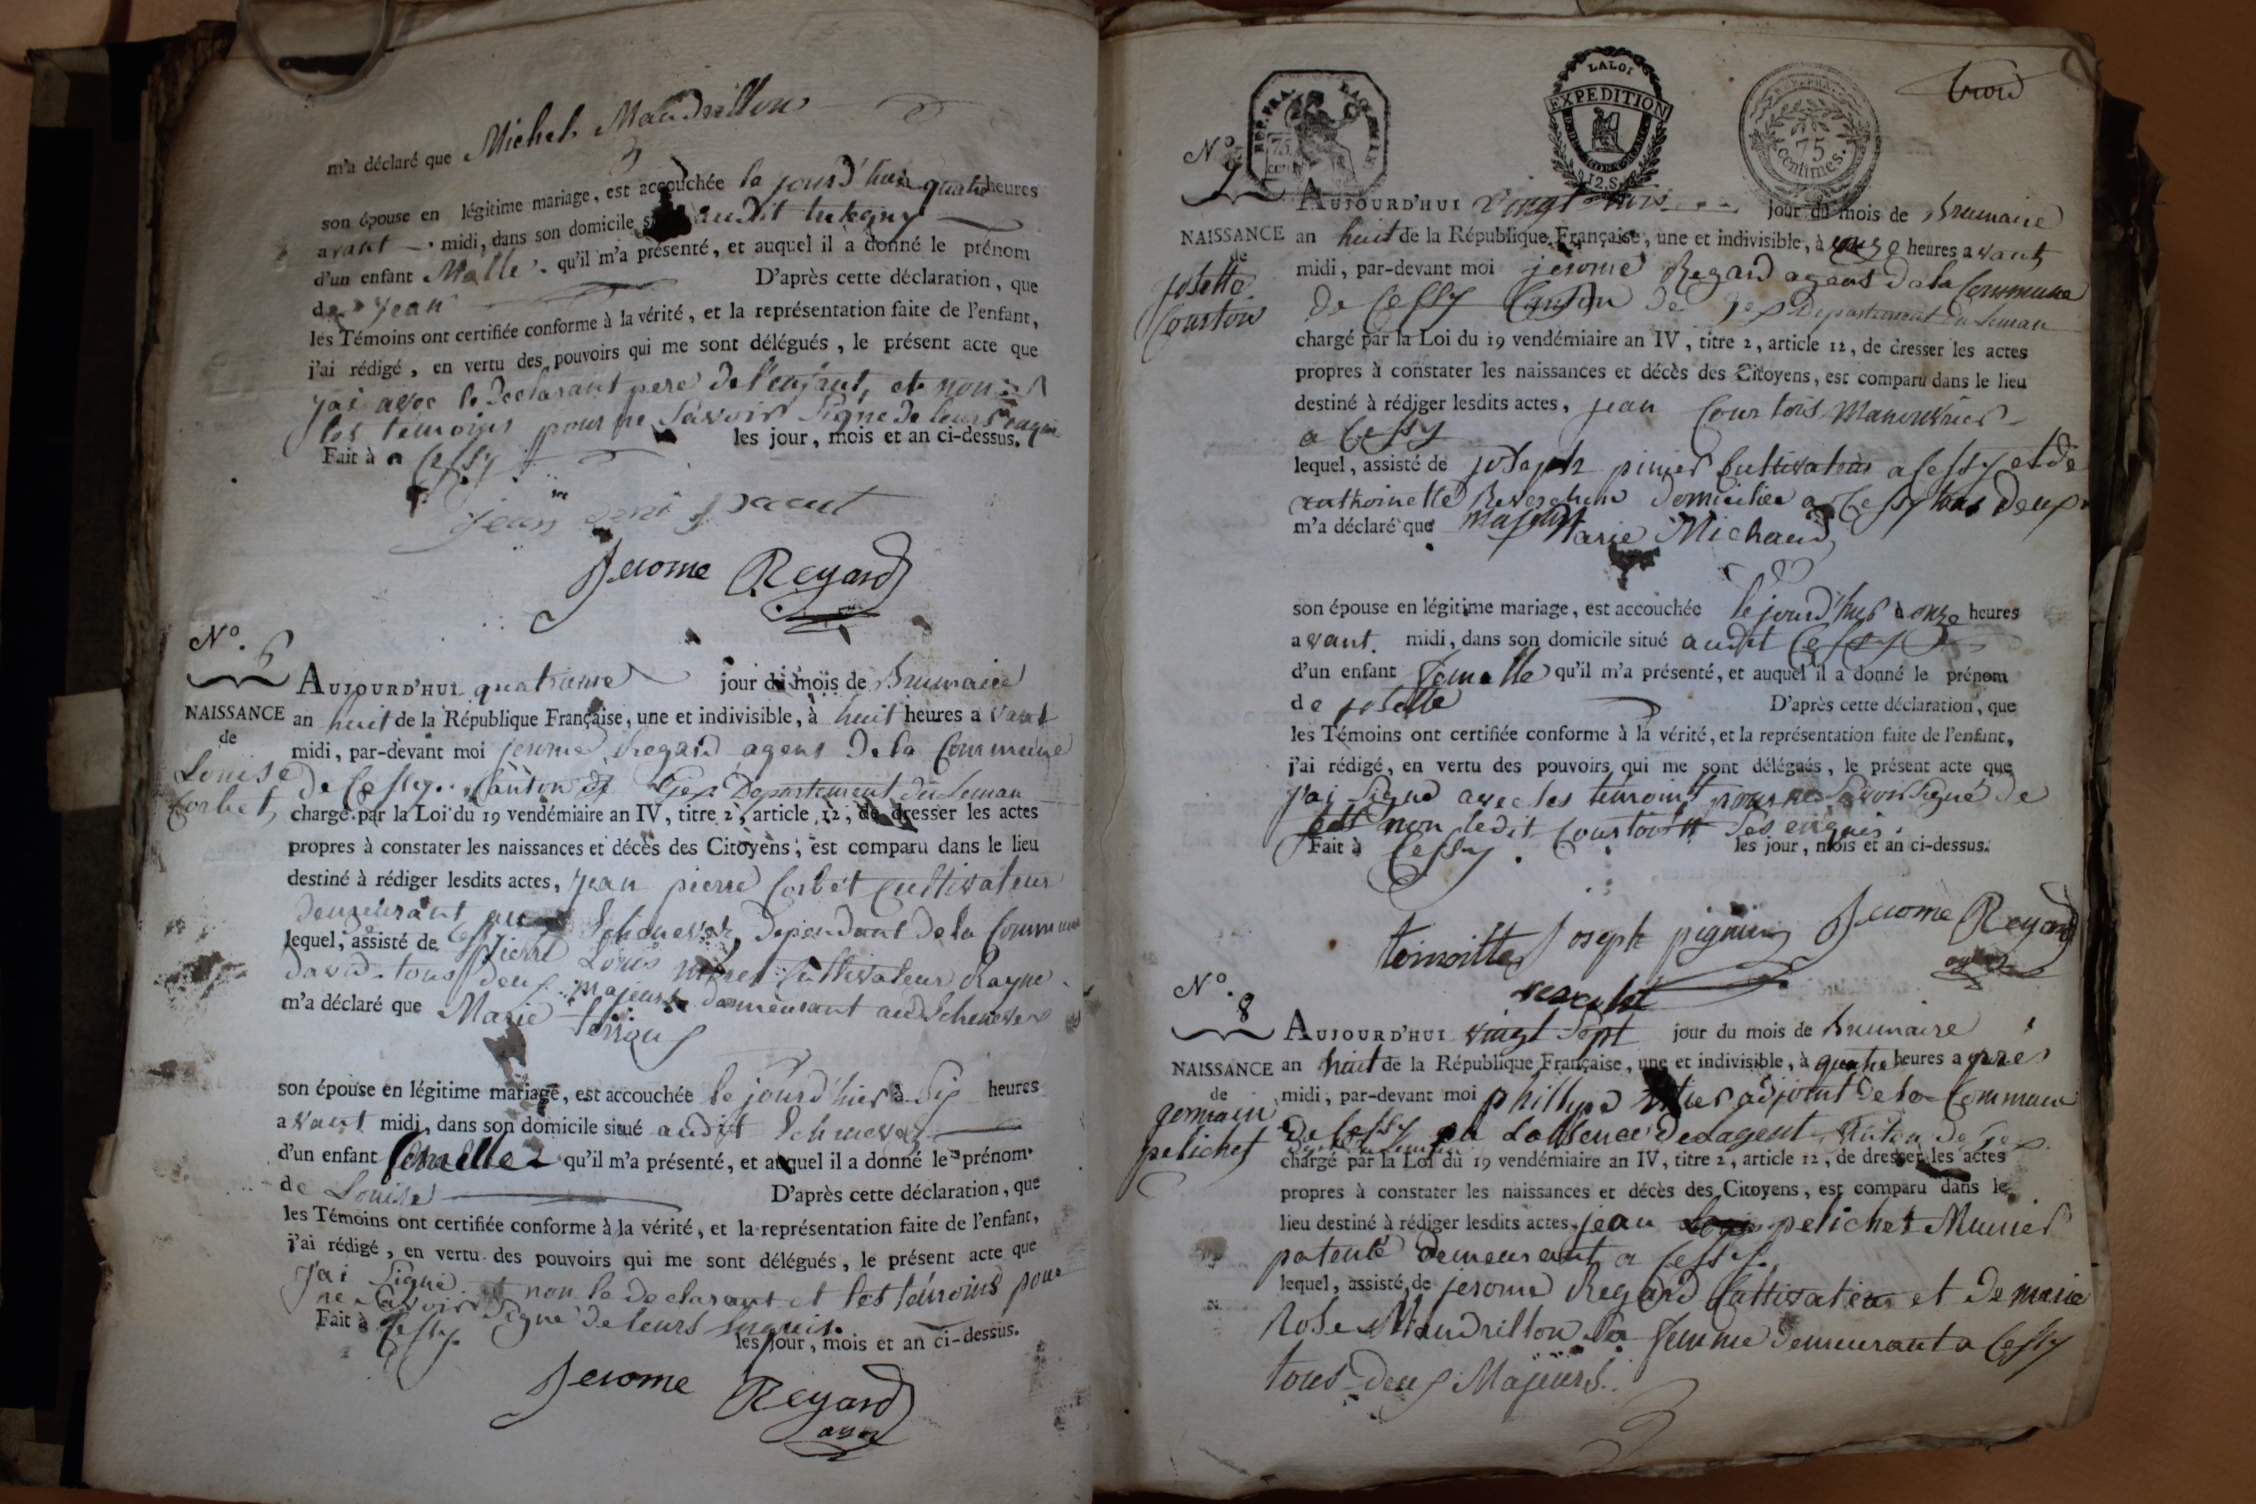 m'a déclaré que Michel Maudrillon
son épouse en légitime mariage, est accouchée le jourd'hui quatre heures
avant midi, dans son domicile audit
d'un enfant Malle qu'il m'a présenté, et auquel il a donné le prénom
de Jean D'après cette déclaration, que
les Témoins ont certifiée conforme à la vérité, et la représentation faite de l'enfant,
j'ai rédigé, en vertu des pouvoirs qui me sont délégués, le présent acte que
j'ai avec le declarant pere de l'enfant, et non
les temoins pour ne savoir signe de leurs enquis
Fait à Cessy les jour, mois et an ci-dessus.
jean
Jerome Regard
N°. 6
AUJOURD'HUI quatrieme jour du mois de Brumaire
NAISSANCE
de
Louise
Corbet
an huit de la République Française, une et indivisible, à huit heures avant
midi, par-devant moi jerome Regard agent de la Commune
de Cessy Canton de Gex Departement du Leman
chargé par la Loi du 19 vendémiaire an IV, titre 2, article 12, de dresser les actes
propres à constater les naissances et décès des Citoyens, est comparu dans le lieu
destiné à rédiger lesdits actes, jean pierre Corbet Cultivateur
demeurant dependant de la Commune
lequel, assisté de Cessy Pierre Louis Cultivateur
david tous deux majeurs demeurant au
m'a déclaré que Marie
son épouse en légitime mariage, est accouchée le jourd'hier à Six heures
avant midi, dans son domicile situé audit
d'un enfant femelle qu'il m'a présenté, et auquel il a donné le prénom
de Louise D'après cette déclaration, que
les Témoins ont certifiée conforme à la vérité, et la représentation faite de l'enfant,
j'ai rédigé, en vertu des pouvoirs qui me sont délégués, le présent acte que
J'ai Signé et non le declarant et les temoins pour
ne savoir Signé de leurs enquis
Fait à Cessy les jour, mois et an ci-dessus.
Jerome Regard
agent
trois
REP. FRA.
75
cent
LA LOI
EXPEDITION
12.S.
75
centimes.
N°. 7
AUJOURD'HUI vingt trois jour du mois de Brumaire
NAISSANCE
de
josette
Courtois
an huit de la République Française, une et indivisible, à onze heures avant
midi, par-devant moi jerome Regard agent de la Commune
de Cessy Canton de Gex Departement du Leman
chargé par la Loi du 19 vendémiaire an IV, titre 2, article 12, de dresser les actes
propres à constater les naissances et décès des Citoyens, est comparu dans le lieu
destiné à rédiger lesdits actes, jean Courtois Manouvrier
a Cessy
lequel, assisté de joseph Cultivateur a Cessy et de
domiciliée a Cessy tous deux
m'a déclaré que majeurs Marie Michaud
son épouse en légitime mariage, est accouchée le jourd'hui à onze heures
avant midi, dans son domicile situé audit Cessy
d'un enfant femelle qu'il m'a présenté, et auquel il a donné le prénom
de josette D'après cette déclaration, que
les Témoins ont certifiée conforme à la vérité, et la représentation faite de l'enfant,
j'ai rédigé, en vertu des pouvoirs qui me sont délégués, le présent acte que
j'ai Signé avec les temoins pour ne savoir Signé de
non ledit Courtois enquis
Fait à Cessy. les jour, mois et an ci-dessus.
joseph Jerome Regard
agent
N°. 8
AUJOURD'HUI vingt sept jour du mois de Brumaire
NAISSANCE
de
germain
pelichet
an huit de la République Française, une et indivisible, à quatre heures apres
midi, par-devant moi phillipe adjoint de la Commune
de Cessy en Labsence de Lagent Canton de Gex
chargé par la Loi du 19 vendémiaire an IV, titre 2, article 12, de dresser les actes
propres à constater les naissances et décès des Citoyens, est comparu dans le
lieu destiné à rédiger lesdits actes, jean pelichet Munier
patenté demeurant a Cessy
lequel, assisté de jerome Regard Cultivateur et de marie
Rose Maudrillon Sa femme demeurant a Cessy
tous deux Majeurs.